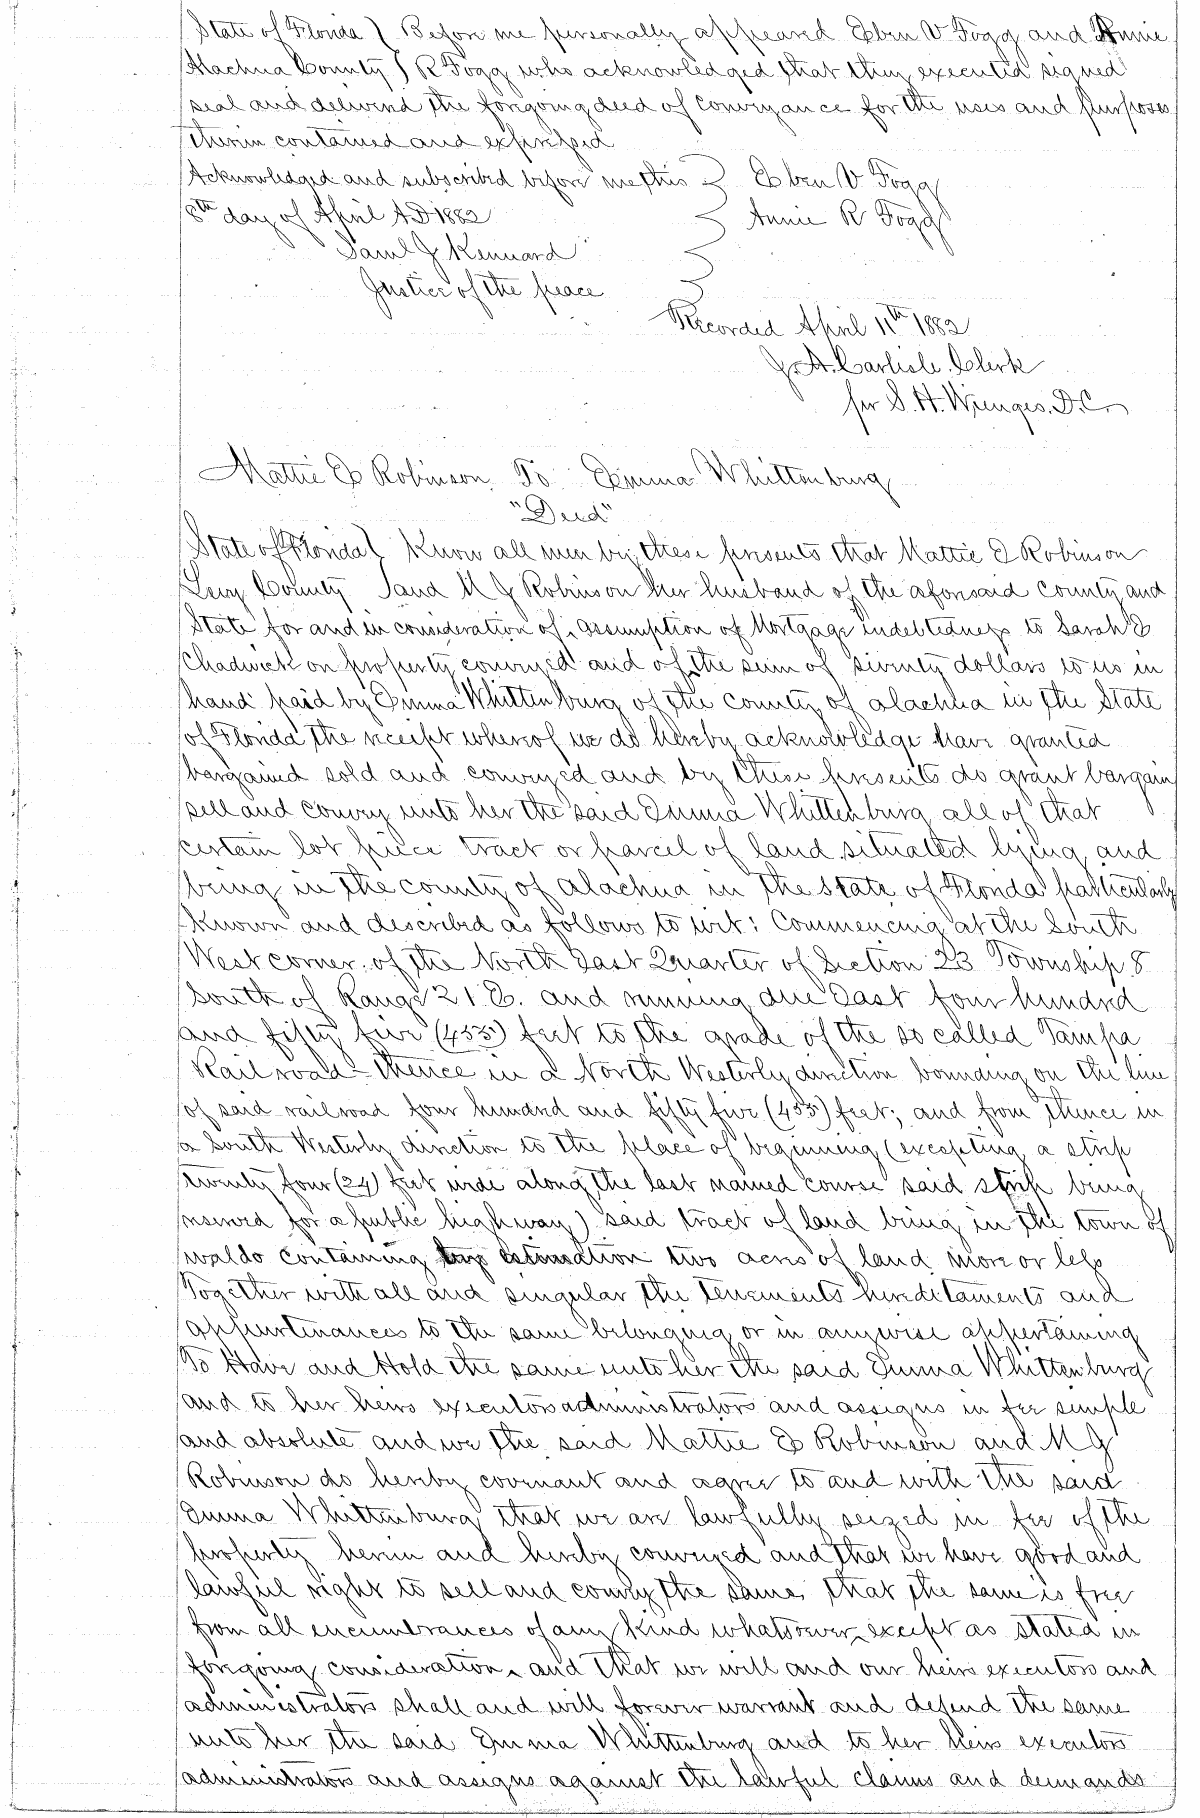 State of Florida } Before me personally appeared Eben V Fogg and Annie
Alachua County } R Fogg who acknowledged that they executed signed
seal and delivered the foregoing deed of conveyance for the uses and purposes
therein contained and expressed
Acknowledged and subscribed before me this } Eben V Fogg
8th day of April A.D 1882 } Annie R Fogg
Saml J Kennard
Justice of the peace
Recorded April 11th 1882
J. A. Carlisle. Clerk
per S. H. Wienges. D.C.
Mattie E Robinson To Emma Whittenburg
"Deed"
State of Florida } Know all men by these presents that Mattie E Robinson
Levy County } and M J Robinson her husband of the aforesaid county and
State for and in consideration of assumption of Mortgage indebtedness to Sarah E
Chadwick on property conveyed and of the sum of seventy dollars to us in
hand paid by Emma Whittenburg of the county of alachua in the State
of Florida the receipt whereof we do hereby acknowledge have granted
bargained sold and conveyed and by these presents do grant bargain
sell and convey unto her the said Emma Whittenburg all of that
certain lot piece tract or parcel of land situated lying and
being in the county of alachua in the state of Florida particularly
known and described as follows to wit: Commencing at the South
West corner of the North East Quarter of Section 23 Township 8
South of Range 21 E. and running due East four hundred
and fifty five (455) feet to the grade of the so called Tampa
Railroad - thence in a North Westerly direction bounding on the line
of said railroad four hundred and fifty five (455) feet; and from thence in
a South Westerly direction to the place of beginning (excepting a strip
twenty four (24) feet wide along the last named course said strip being
reserved for a public highway) said tract of land being in the town of
waldo containing by estimation two acres of land more or less
Together with all and singular the tenements hereditaments and
appurtenances to the same belonging or in anywise appertaining
To Have and Hold the same unto her the said Emma Whittenburg
and to her heirs executors administrators and assigns in fee simple
and absolute and we the said Mattie E Robinson and M J
Robinson do hereby covenant and agree to and with the said
Emma Whittenburg that we are lawfully seized in fee of the
property herein and hereby conveyed and that we have good and
lawful right to sell and convey the same, that the same is free
from all encumbrances of any kind whatsoever, except as stated in
foregoing consideration, and that we will and our heirs executors and
administrators shall and will forever warrant and defend the same
unto her the said Emma Whittenburg and to her heirs executors
administrators and assigns against the lawful claims and demands